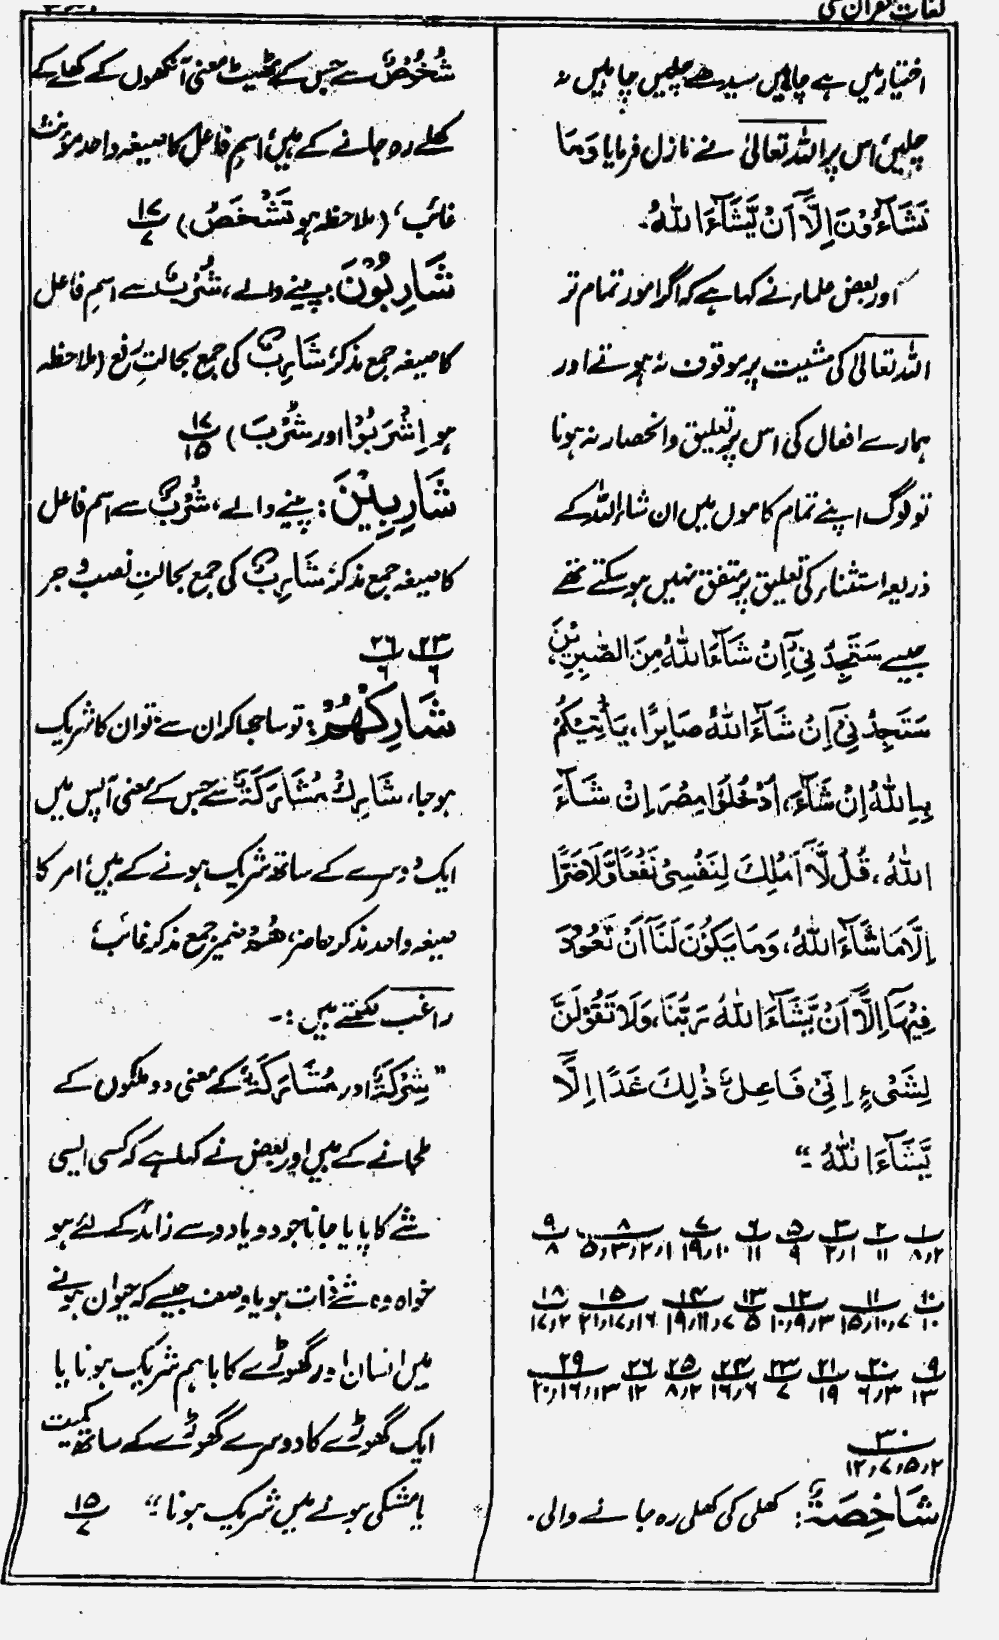 لغات القرآن
اختیار میں ہے چاہیں سیدھے چلیں چاہیں نہ
چلیں، اس پر اللہ تعالیٰ نے نازل فرمایا وَمَا
تَشَآءُوْنَ اِلَّآ اَنْ يَّشَآءَ اللّٰهُ۔
اور بعض علماء نے کہا ہے کہ اگر امور تمام تر
اللہ تعالیٰ کی مشیت پر موقوف نہ ہوتے اور
ہمارے افعال کی اس پر تعلیق و انحصار نہ ہونا
تو لوگ اپنے تمام کاموں میں ان شاء اللہ کے
ذریعہ استثناء کی تعلیق پر متفق نہیں ہو سکتے تھے
جیسے سَتَجِدُنِيْٓ اِنْ شَآءَ اللّٰهُ مِنَ الصّٰبِرِيْنَ،
سَتَجِدُنِيْٓ اِنْ شَآءَ اللّٰهُ صَابِرًا، يَاْتِيْكُمْ
بِهِ اللّٰهُ اِنْ شَآءَ، اُدْخُلُوْا مِصْرَ اِنْ شَآءَ
اللّٰهُ، قُلْ لَّآ اَمْلِكُ لِنَفْسِيْ نَفْعًا وَّلَا ضَرًّا
اِلَّا مَا شَآءَ اللّٰهُ، وَمَا يَكُوْنُ لَنَآ اَنْ نَّعُوْدَ
فِيْهَآ اِلَّآ اَنْ يَّشَآءَ اللّٰهُ رَبُّنَا، وَلَا تَقُوْلَنَّ
لِشَيْءٍ اِنِّيْ فَاعِلٌ ذٰلِكَ غَدًا اِلَّآ
يَّشَآءَ اللّٰهُ ۔“
۱ ۲ ۳ ۵ ۶ ۷ ۸ ۹
۸٫۲ ۱۱ ۲٫۱ ۹ ۱۱ ۱۹٫۱۰ ۵٫۳٫۲٫۱ ۸
۱۰ ۱۱ ۱۲ ۱۳ ۱۴ ۱۵ ۱۸
۱۰ ۱۵٫۱۰٫۷ ۱۰٫۹٫۳ ۵ ۱۹٫۱۱٫۷ ۲۱٫۱۷٫۱۶ ۱۷٫۲
۹ ۲۰ ۲۱ ۲۳ ۲۴ ۲۵ ۲۶ ۲۹
۱۳ ۶٫۳ ۱۹ ۷ ۱۶٫۶ ۸٫۲ ۱۲ ۲۰٫۱۶٫۱۳
۳۰
۱۲٫۷٫۵٫۲
شَاخِصَةٌ: کھلی کی کھلی رہ جانے والی.
شُخُوْصٌ سے جس کے ٹھیٹ معنی آنکھوں کے کھلے کے
کھلے رہ جانے کے ہیں، اسمِ فاعل کا صیغہ واحد مؤنث
غائب، (ملاحظہ ہو تَشْخَصُ) ۱۷
۷
شَارِبُوْنَ: پینے والے، شُرْبٌ سے اسمِ فاعل
کا صیغہ جمع مذکر، شَارِبٌ کی جمع بحالتِ رفع (ملاحظہ
ہو اِشْرَبُوْا اور شُرْبَ) ۲۷
۱۵
شَارِبِيْنَ: پینے والے، شُرْبٌ سے اسم فاعل
کا صیغہ جمع مذکر، شَارِبٌ کی جمع بحالتِ نصب و جر
۲۳ ۲۶
۶ ۶
شَارِكْهُمْ: تو ساجھا کر ان سے، تو ان کا شریک
ہو جا، شَارِكْ مُشَارَكَةٌ سے جس کے معنی آپس میں
ایک دوسرے کے ساتھ شریک ہونے کے ہیں، امر کا
صیغہ واحد مذکر حاضر، هُمْ ضمیر جمع مذکر غائب
راغب لکھتے ہیں :۔
”شِرْكَةٌ اور مُشَارَكَةٌ کے معنی دو ملکوں کے
ملجانے کے ہیں اور بعض نے کہا ہے کہ کسی ایسی
شے کا پایا جانا جو دو یا دو سے زائد کے لئے ہو
خواہ وہ شے ذات ہو یا وصف جیسے کہ حیوان ہونے
میں انسان اور گھوڑے کا باہم شریک ہونا یا
ایک گھوڑے کا دوسرے گھوڑے کے ساتھ کمیت
یا مشکی ہونے میں شریک ہونا ۔“ ۱۵
۷